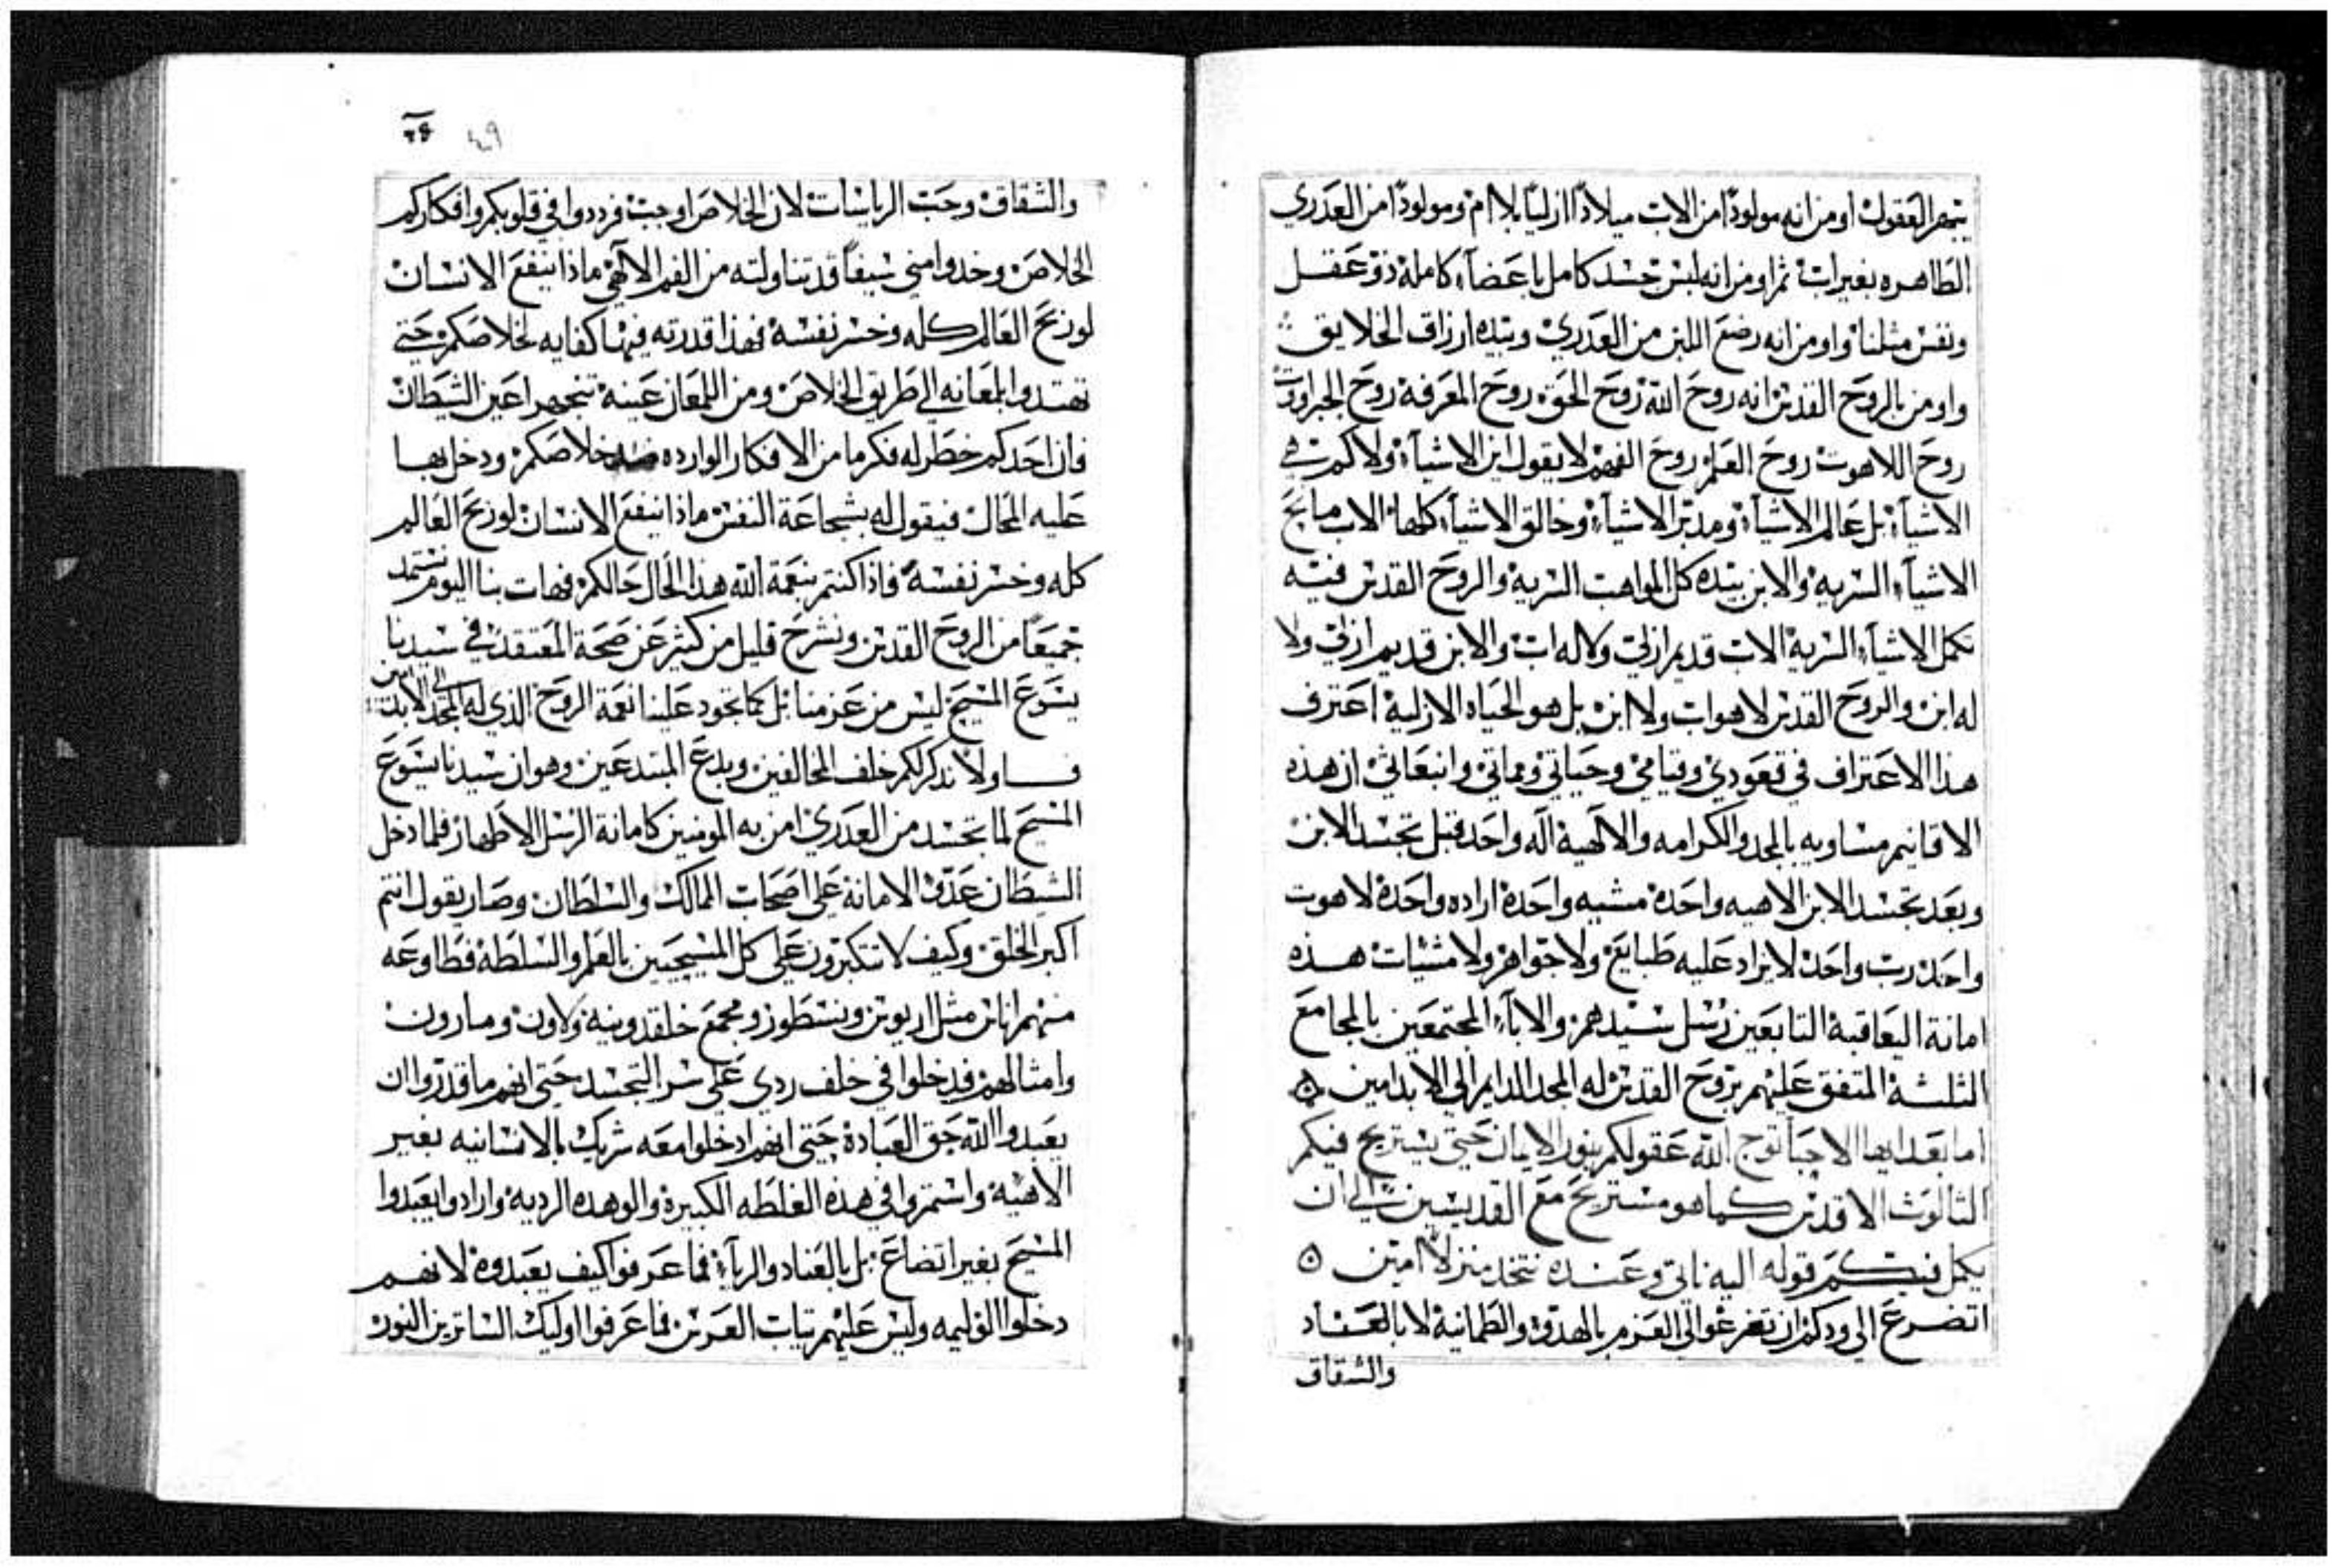 يبهر العقول اومن انه مولودًا من الاب ميلادًا ازليًا بلا ام ومولودًا من العدري
الطاهره بغير اب ثم اومن انه لبس جسد كامل باعضاء كامله ذو عقل
ونفس مثلنا واومن انه رضع اللبن من العدري وبيده ارزاق الخلايق
واومن بالروح القدس انه روح الله روح الحق روح المعرفة روح الجبروت
روح اللاهوت روح العلم روح الفهم لا يقول اين الاشياء ولا كم هي
الاشياء بل عالم الاشياء ومدبر الاشياء وخالق الاشياء كلها الاب مابح
الاشياء السريه والابن بيده كل المواهب السريه والروح القدس فيه
تكمل الاشياء السرية الاب قديم ازلي ولا له اب والابن قديم ازلي ولا
له ابن والروح القدس لا هو اب ولا ابن بل هو الحياه الازلية اعترف
هذا الاعتراف في قعودي وقيامي وحياتي ومماتي وانبعاثي ان هذه
الاقانيم مساويه بالمجد والكرامه والالهية اله واحد قبل تجسد الابن
وبعد تجسد الابن الاهيه واحدة مشيه واحدة اراده واحدة لاهوت
واحد رب واحد لا يزاد عليه طبايع ولا جواهر ولا مشيات هذه
امانة اليعاقبة التابعين رسل سيدهم والاباء المجتمعين بالمجامع
الثلثة المتفق عليهم بروح القدس له المجد الدايم الي الابد امين
اما بعد ايها الاحبا توج الله عقولكم بنور الايمان حتي يستريح فيكم
الثالوث الاقدس كما هو مستريح مع القديسين الي ان
يكمل فيكم قوله اليه ناتي وعنده نتخد منزلاً امين
اتضرع الي ودكم ان تفرغوا لي العزم بالهدو والطمانية لا بالعناد
والشقاق
٤٩
والشقاق وحب الرياسات لان الخلاص اوجب فرددوا في قلوبكم وافكاركم
الخلاص وخدوا مني سيفاً قد تناولته من الفم الالهي ماذا ينفع الانسان
لو ربح العالم كله وخسر نفسه فهذا قدرته فيها كفايه لخلاصكم حتي
تهتدوا بلمعانه الي طريق الخلاص ومن اللمعان عينه تنجهر اعين الشيطان
فان احدكم خطر له فكر ما من الافكار الوارده ضد خلاصكم ودخل بها
عليه المحال فيقول له بشجاعة النفس ماذا ينفع الانسان لو ربح العالم
كله وخسر نفسه فاذا كنتم بنعمة الله هذا الحال حالكم فهات بنا اليوم نستمد
جميعًا من الروح القدس ونشرح قليل من كثير عن صحة المعتقد في سيدنا
يسوع المسيح ليس من عزمنا بل كما تجود علينا نعمة الروح الذي له المجد الي الابد امين
فاولاً نذكر لكم خلف المخالفين وبدع المبتدعين وهو ان سيدنا يسوع
المسيح لما تجسد من العدري امن به المومنين كامانة الرسل الاطهار فلما دخل
الشيطان عدو الامانة علي اصحاب الممالك والسلطان وصار يقول انتم
اكبر الخلق وكيف لا تتكبرون علي كل المسيحيين بالعلم والسلطة فطاوعه
منهم اناس مثل اريوس ونسطور ومجمع خلقدونية ولاون ومارون
وامثالهم فدخلوا في خلف ردي علي سر التجسد حتي انهم ما قدروا ان
يعبدوا الله حق العبادة حتي انهم ادخلوا معه شريك بالانسانيه بغير
الاهية واستمروا في هذه الغلطه الكبيرة والوهده الرديه وارادوا يعبدوا
المسيح بغير اتضاع بل بالعناد والرياء فما عرفوا كيف يعبدوه لانهم
دخلوا الوليمه وليس عليهم تياب العرس فما عرفوا اوليك الساترين النور